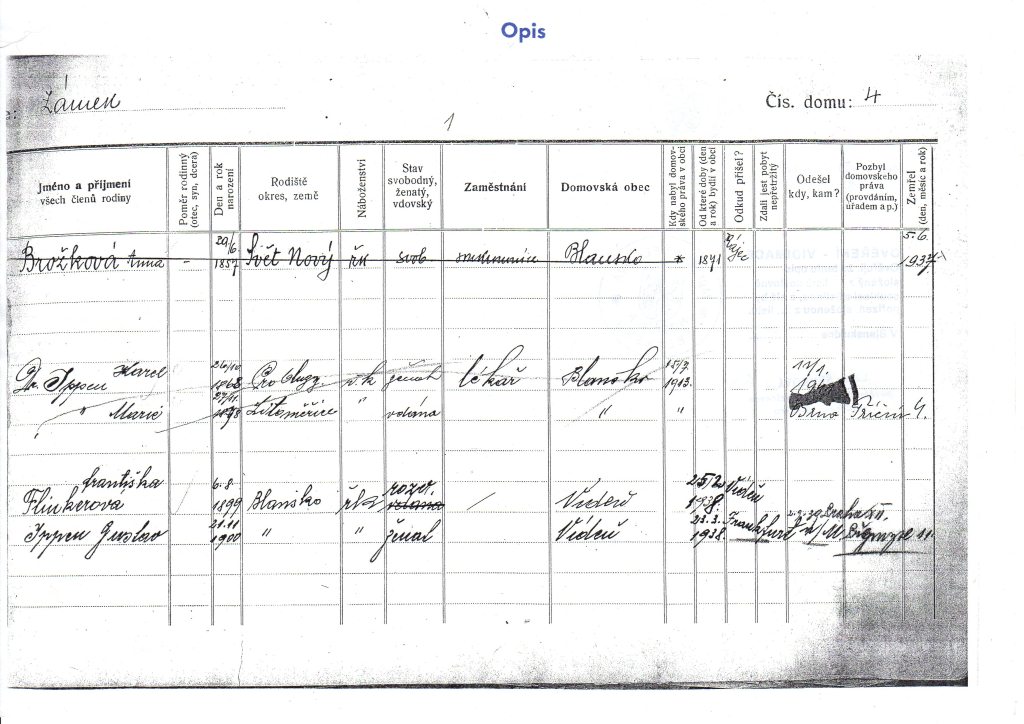 Opis
Zámek
Čís. domu: 4
1
Jméno a přijmení všech členů rodiny
Poměr rodinný (otec, syn, dcera)
Den a rok narození
Rodiště okres, země
Náboženství
Stav svobodný, ženatý, vdovský
Zaměstnání
Domovská obec
Kdy nabyl domovského práva v obci
Od které doby (den a rok) bydlí v obci
Odkud přišel?
Zdali jest pobyt nepřetržitý
Odešel kdy, kam?
Pozbyl domovského práva (provdáním, úřadem a p.)
Zemřel (den, měsíc a rok)
Brožková Anna - 29/6 1857 Svět Nový řk svob Blansko * 1891 Rájec 5.6. 1937
Dr. Ippen Karel 26/10 1868 ženat lékař Blansko 15/7 1913 11/1.
" Marie 27/11 1878 Litoměřice " vdaná " " Brno 4.
Františka Flinkerová 6.8. 1899 Blansko řk rozv. vdaná / Vídeň 25/2 1938 Vídeň
Ippen Gustav 21.11 1900 " " ženat Vídeň 23.3. 1938 Frankfurt n/M. 2.2.39 Praha XII. 11.